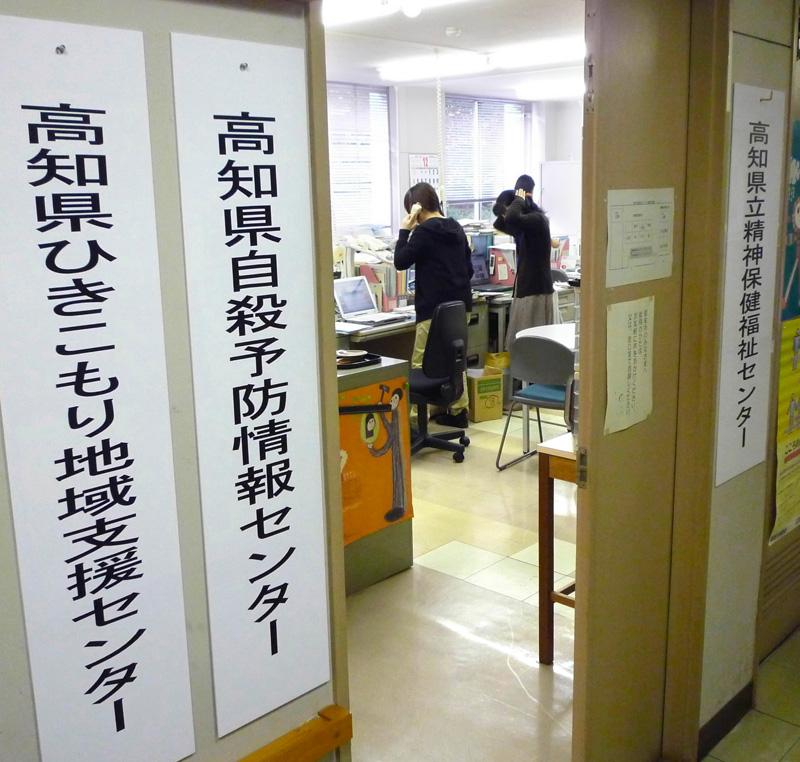 高知県ひきこもり地域支援センター
高知県自殺予防情報センター
12
高知県立精神保健福祉センター